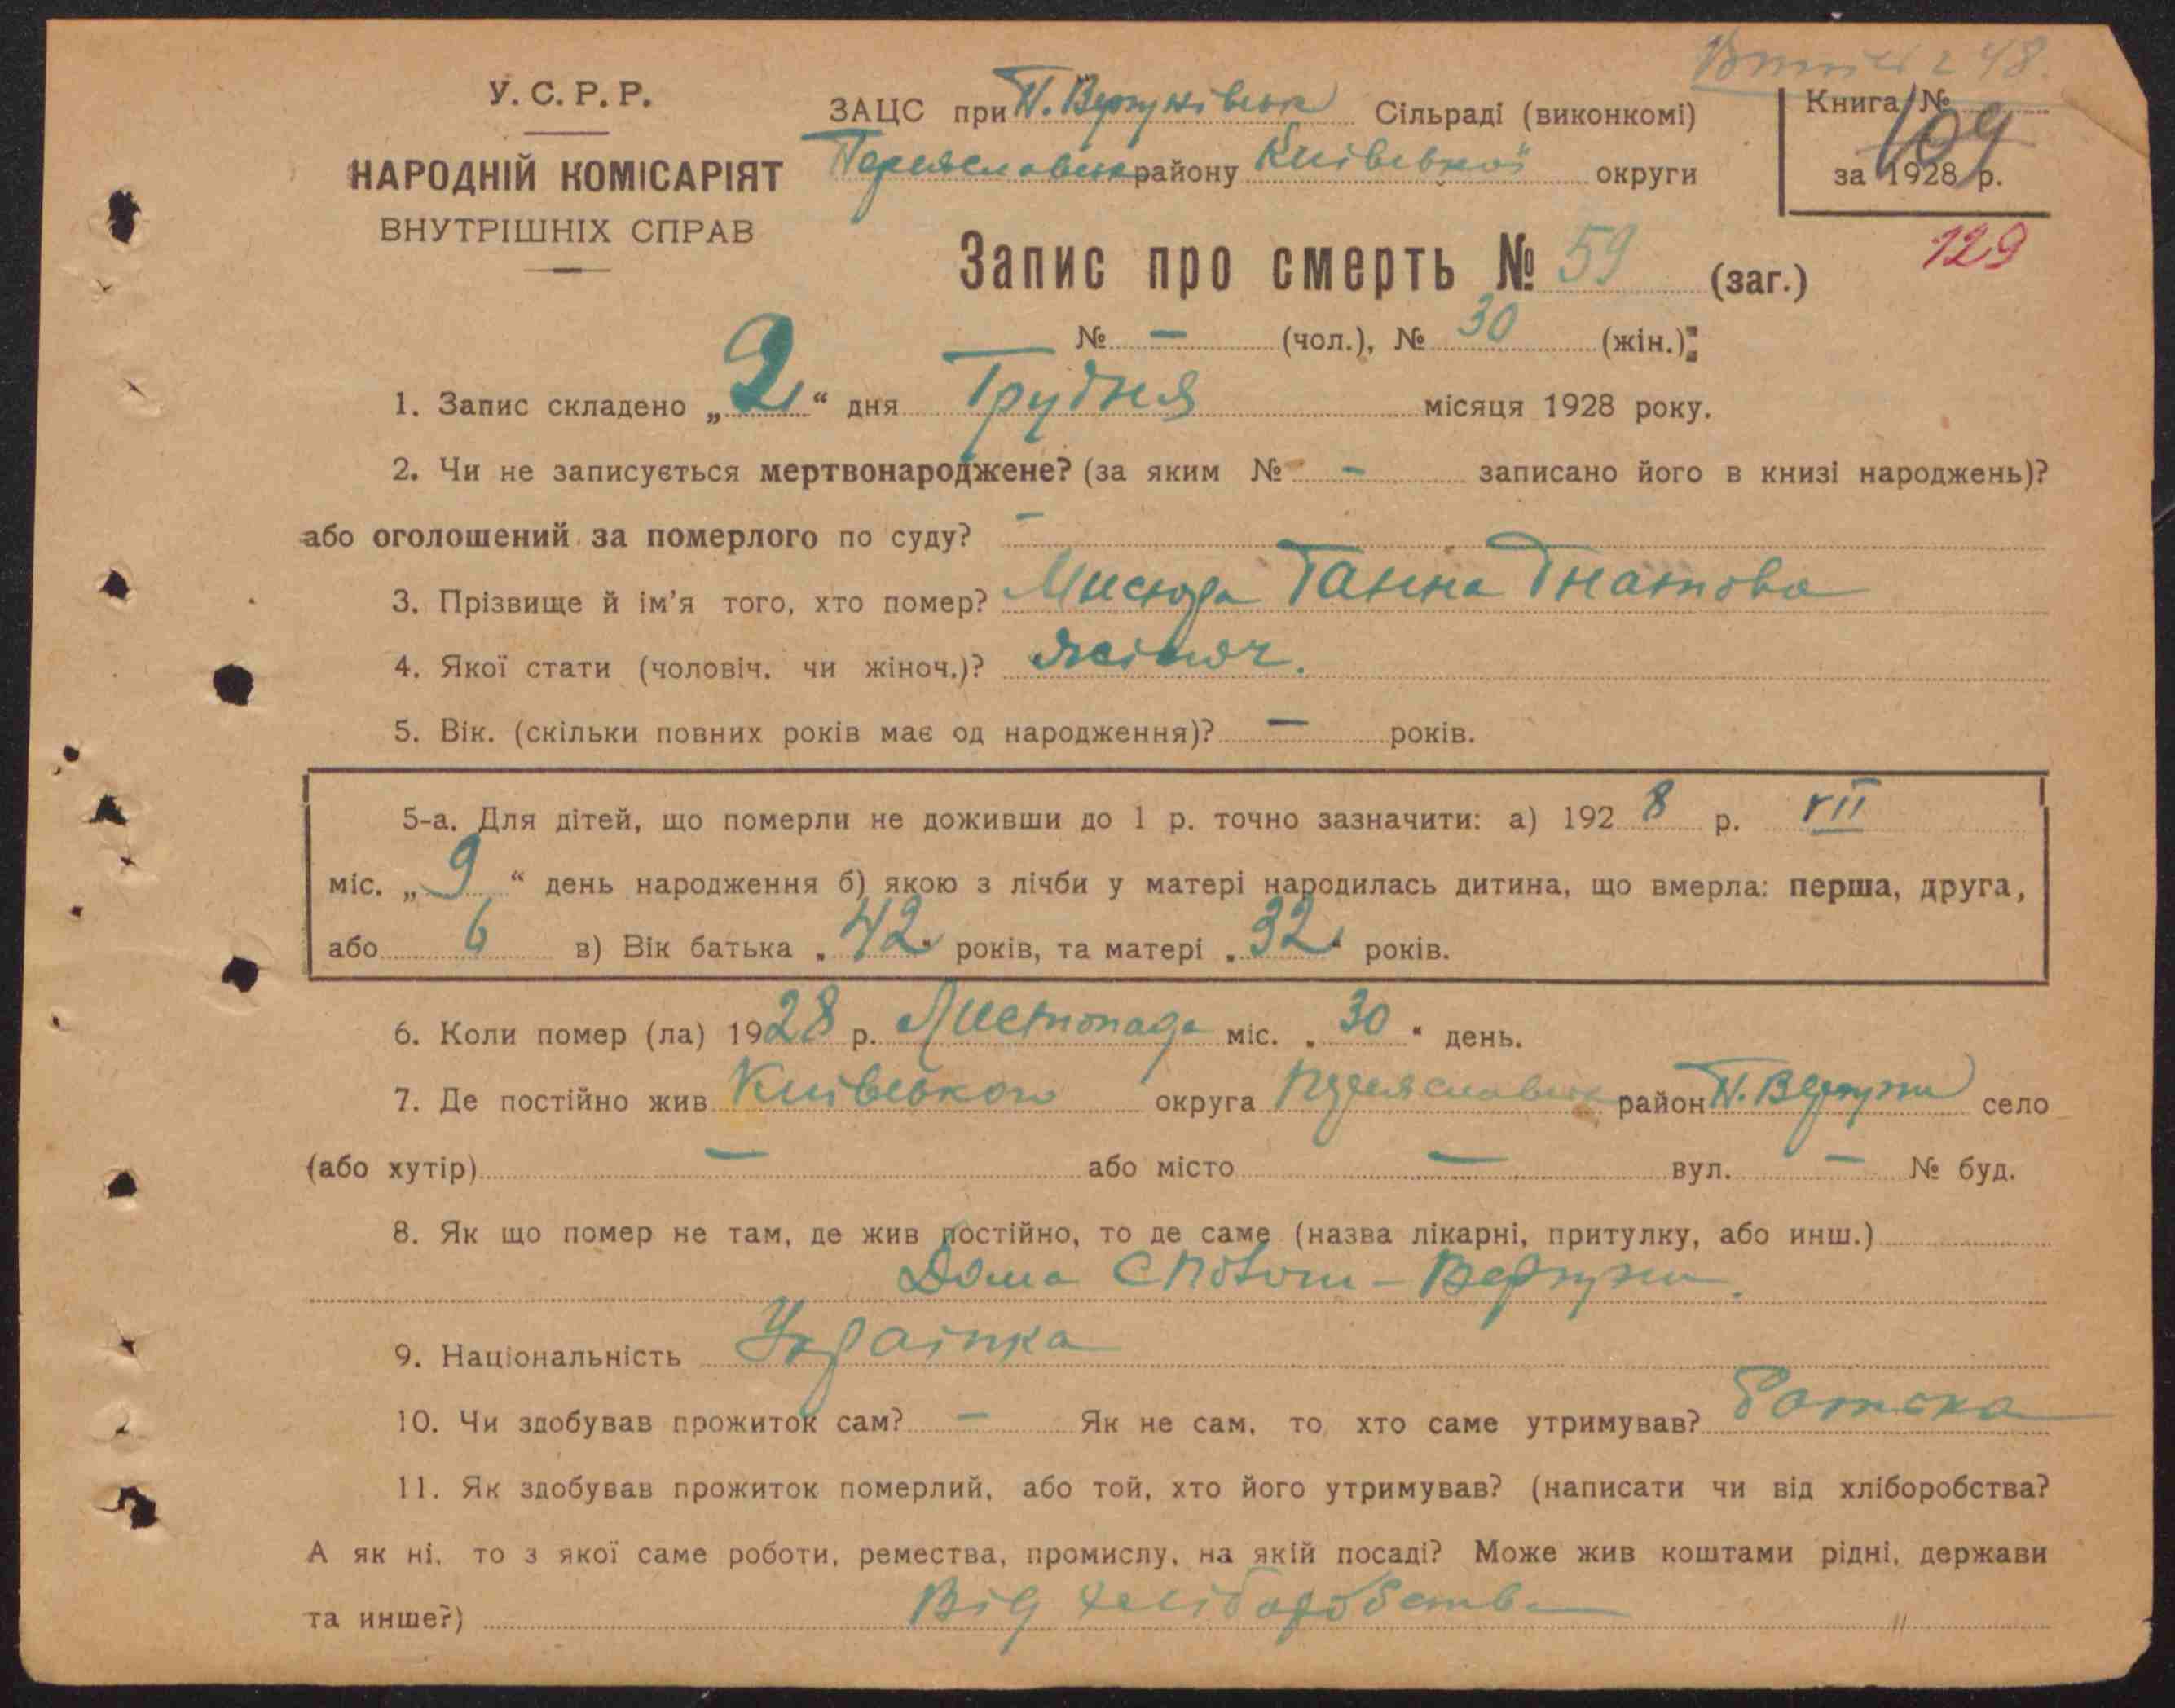 48.
У. С. Р. Р.
ЗАЦС при П. Вергунівськ Сільраді (виконкомі)
Книга №
109
НАРОДНІЙ КОМІСАРІЯТ
Переяславськ району Київської округи
за 1928 р.
ВНУТРІШНІХ СПРАВ
Запис про смерть № 59 (заг.)
129
№ — (чол.), № 30 (жін.);
1. Запис складено „2“ дня Грудня місяця 1928 року.
2. Чи не записується мертвонароджене? (за яким № - записано його в книзі народжень)?
або оголошений за померлого по суду? -
3. Прізвище й ім'я того, хто помер? Мисюра Ганна Гнатова
4. Якої стати (чоловіч. чи жіноч.)? жіноч.
5. Вік. (скільки повних років має од народження)? — років.
5-а. Для дітей, що померли не доживши до 1 р. точно зазначити: а) 1928 р. VII
міс. „9“ день народження б) якою з лічби у матері народилась дитина, що вмерла: перша, друга,
або 6 в) Вік батька „42“ років, та матері „32“ років.
6. Коли помер (ла) 1928 р. Листопада міс. „30“ день.
7. Де постійно жив Київського округа Переяславськ район П. Вергуни село
(або хутір) — або місто — вул. — № буд.
8. Як що помер не там, де жив постійно, то де саме (назва лікарні, притулку, або инш.)
Дома Вергуни.
9. Національність Українка
10. Чи здобував прожиток сам? — Як не сам, то хто саме утримував?
11. Як здобував прожиток померлий, або той, хто його утримував? (написати чи від хліборобства?
А як ні, то з якої саме роботи, ремества, промислу, на якій посаді? Може жив коштами рідні, держави
та инше?) Від хліборобства